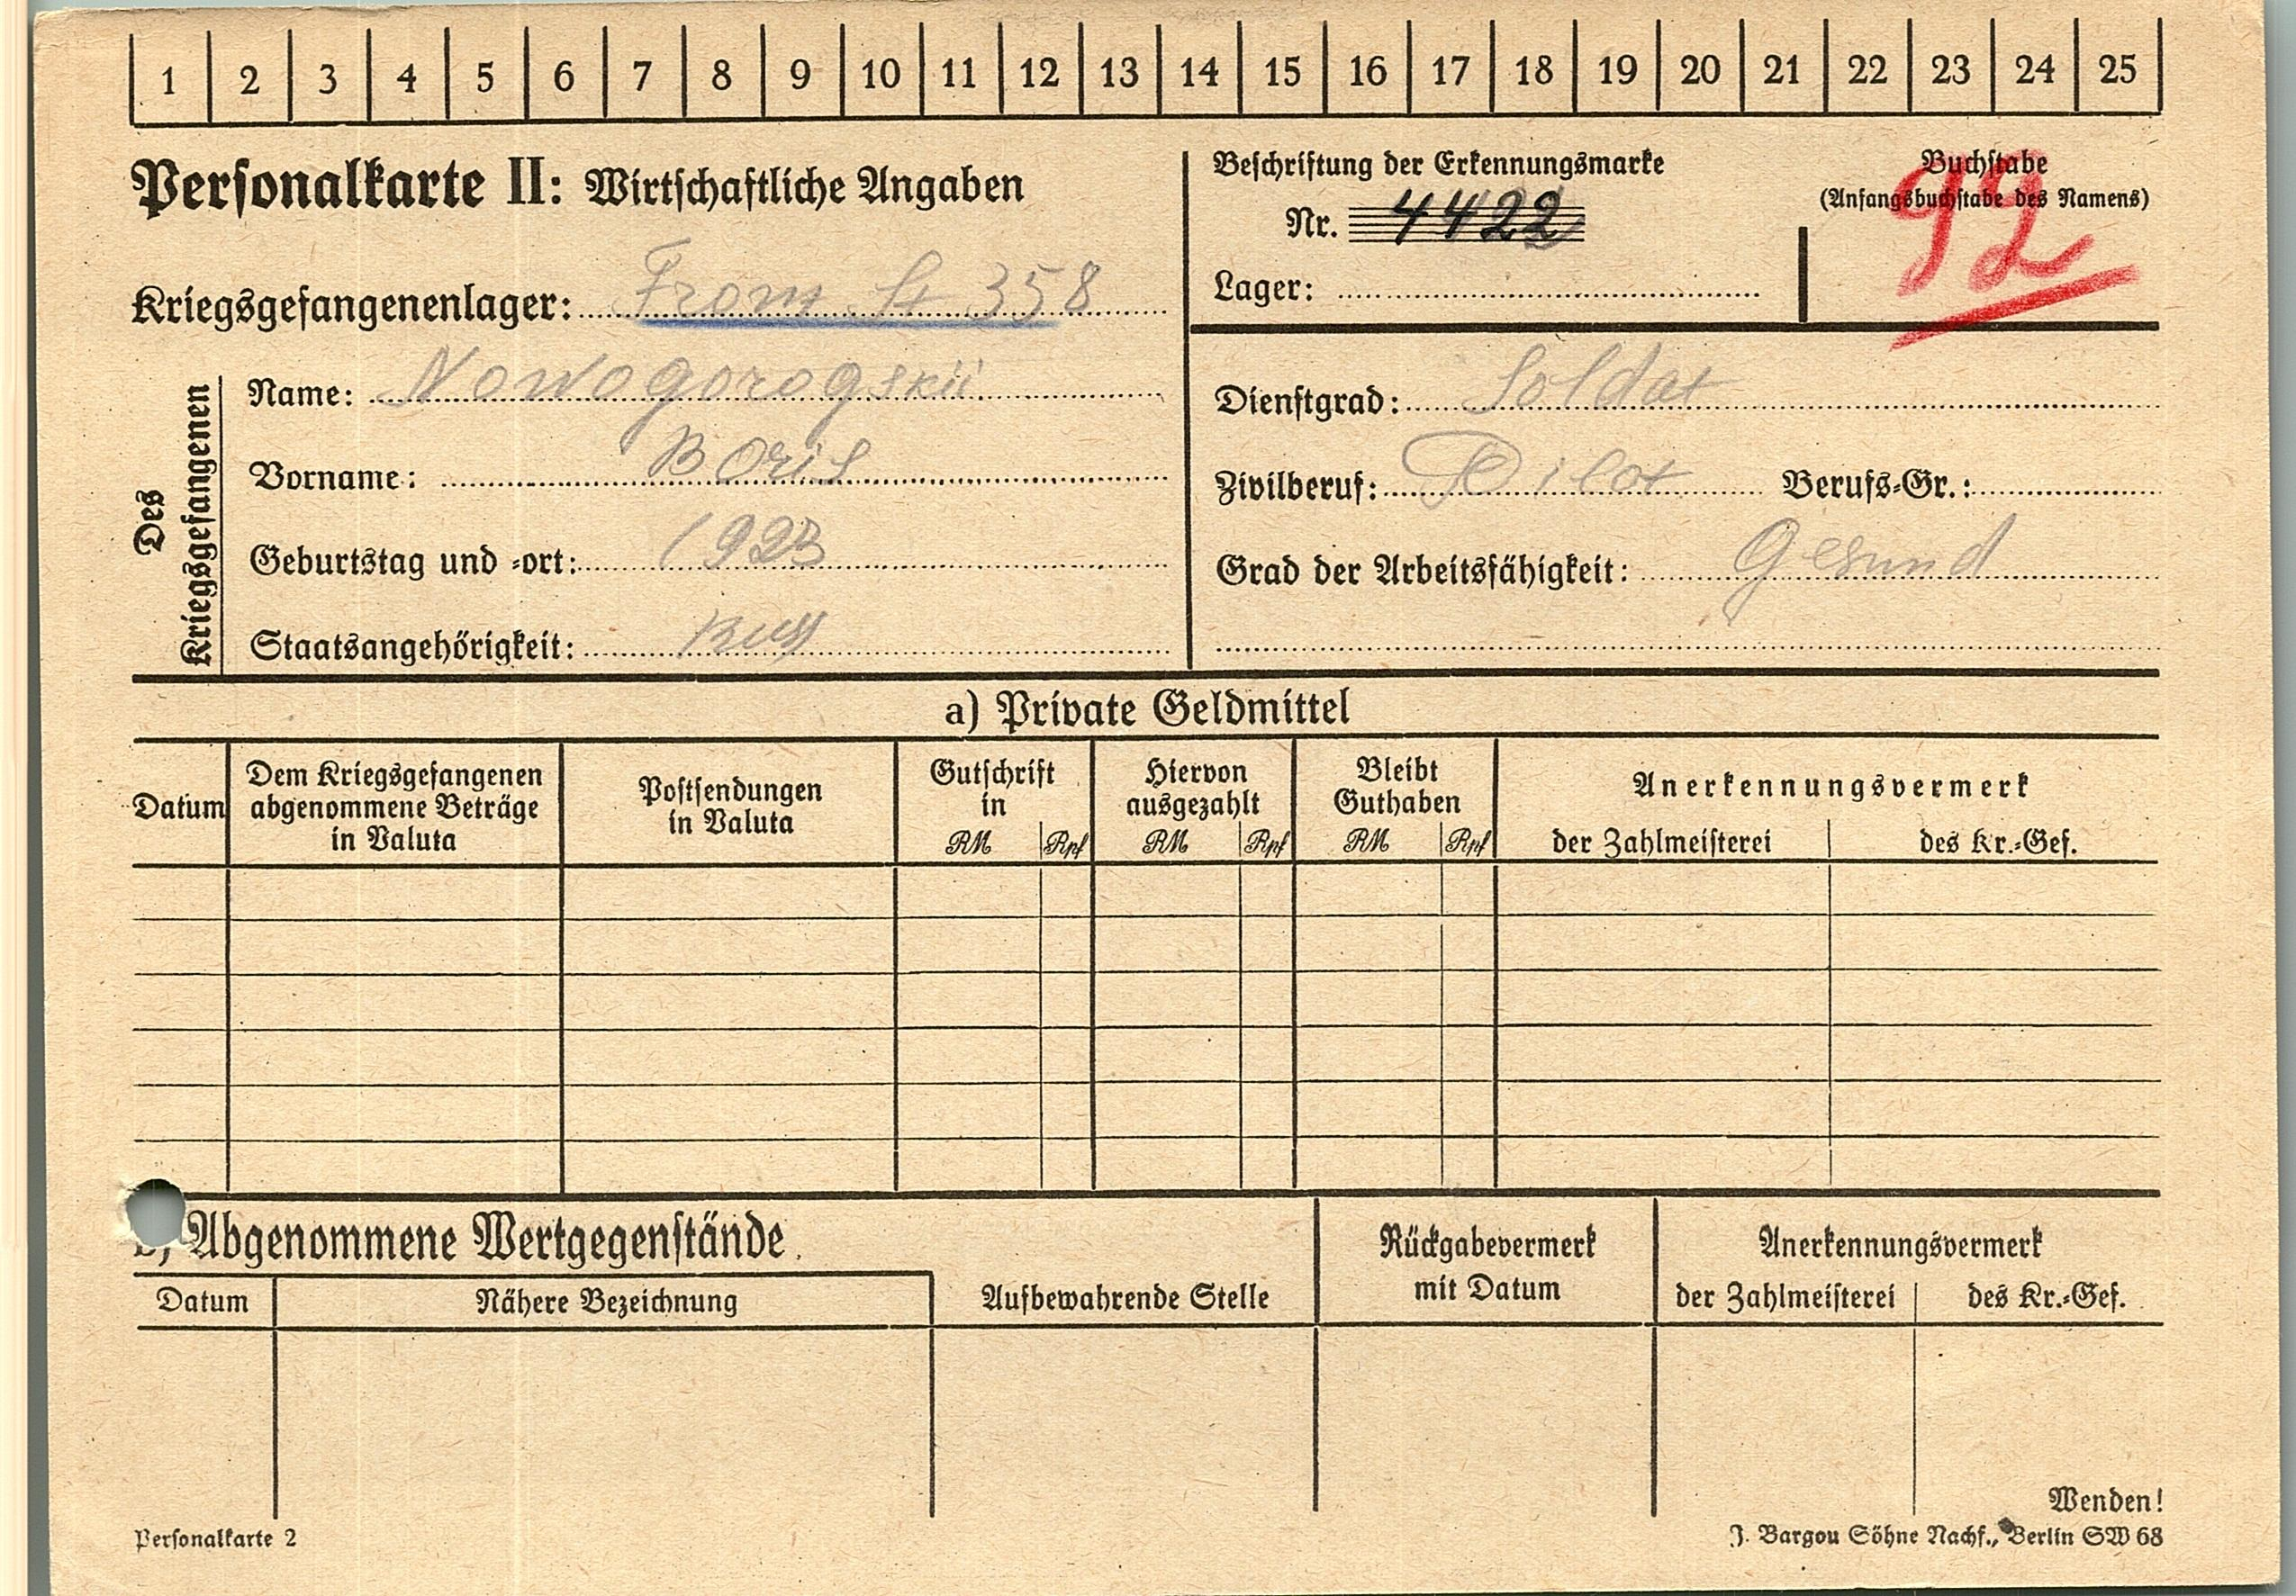 1 2 3 4 5 6 7 8 9 10 11 12 13 14 15 16 17 18 19 20 21 22 23 24 25
Personalkarte II: Wirtschaftliche Angaben
Beschriftung der Erkennungsmarke
Nr. 4422
Lager:
Buchstabe
(Anfangsbuchstabe des Namens)
Kriegsgefangenenlager: Front St 358
Des Kriegsgefangenen
Name: Nowogorogskii
Vorname: Boris
Geburtstag und -ort: 1923
Staatsangehörigkeit: Russ
Dienstgrad: Soldat
Zivilberuf: Pilot Berufs-Gr.:
Grad der Arbeitsfähigkeit: Gesund
a) Private Geldmittel
Datum
Dem Kriegsgefangenen
abgenommene Beträge
in Valuta
Postsendungen
in Valuta
Gutschrift
in
RM Rpf
Hiervon
ausgezahlt
RM Rpf
Bleibt
Guthaben
RM Rpf
Anerkennungsvermerk
der Zahlmeisterei des Kr.-Gef.
b) Abgenommene Wertgegenstände
Datum Nähere Bezeichnung
Aufbewahrende Stelle
Rückgabevermerk
mit Datum
Anerkennungsvermerk
der Zahlmeisterei des Kr.-Gef.
Wenden!
Personalkarte 2
J. Bargou Söhne Nachf., Berlin SW 68